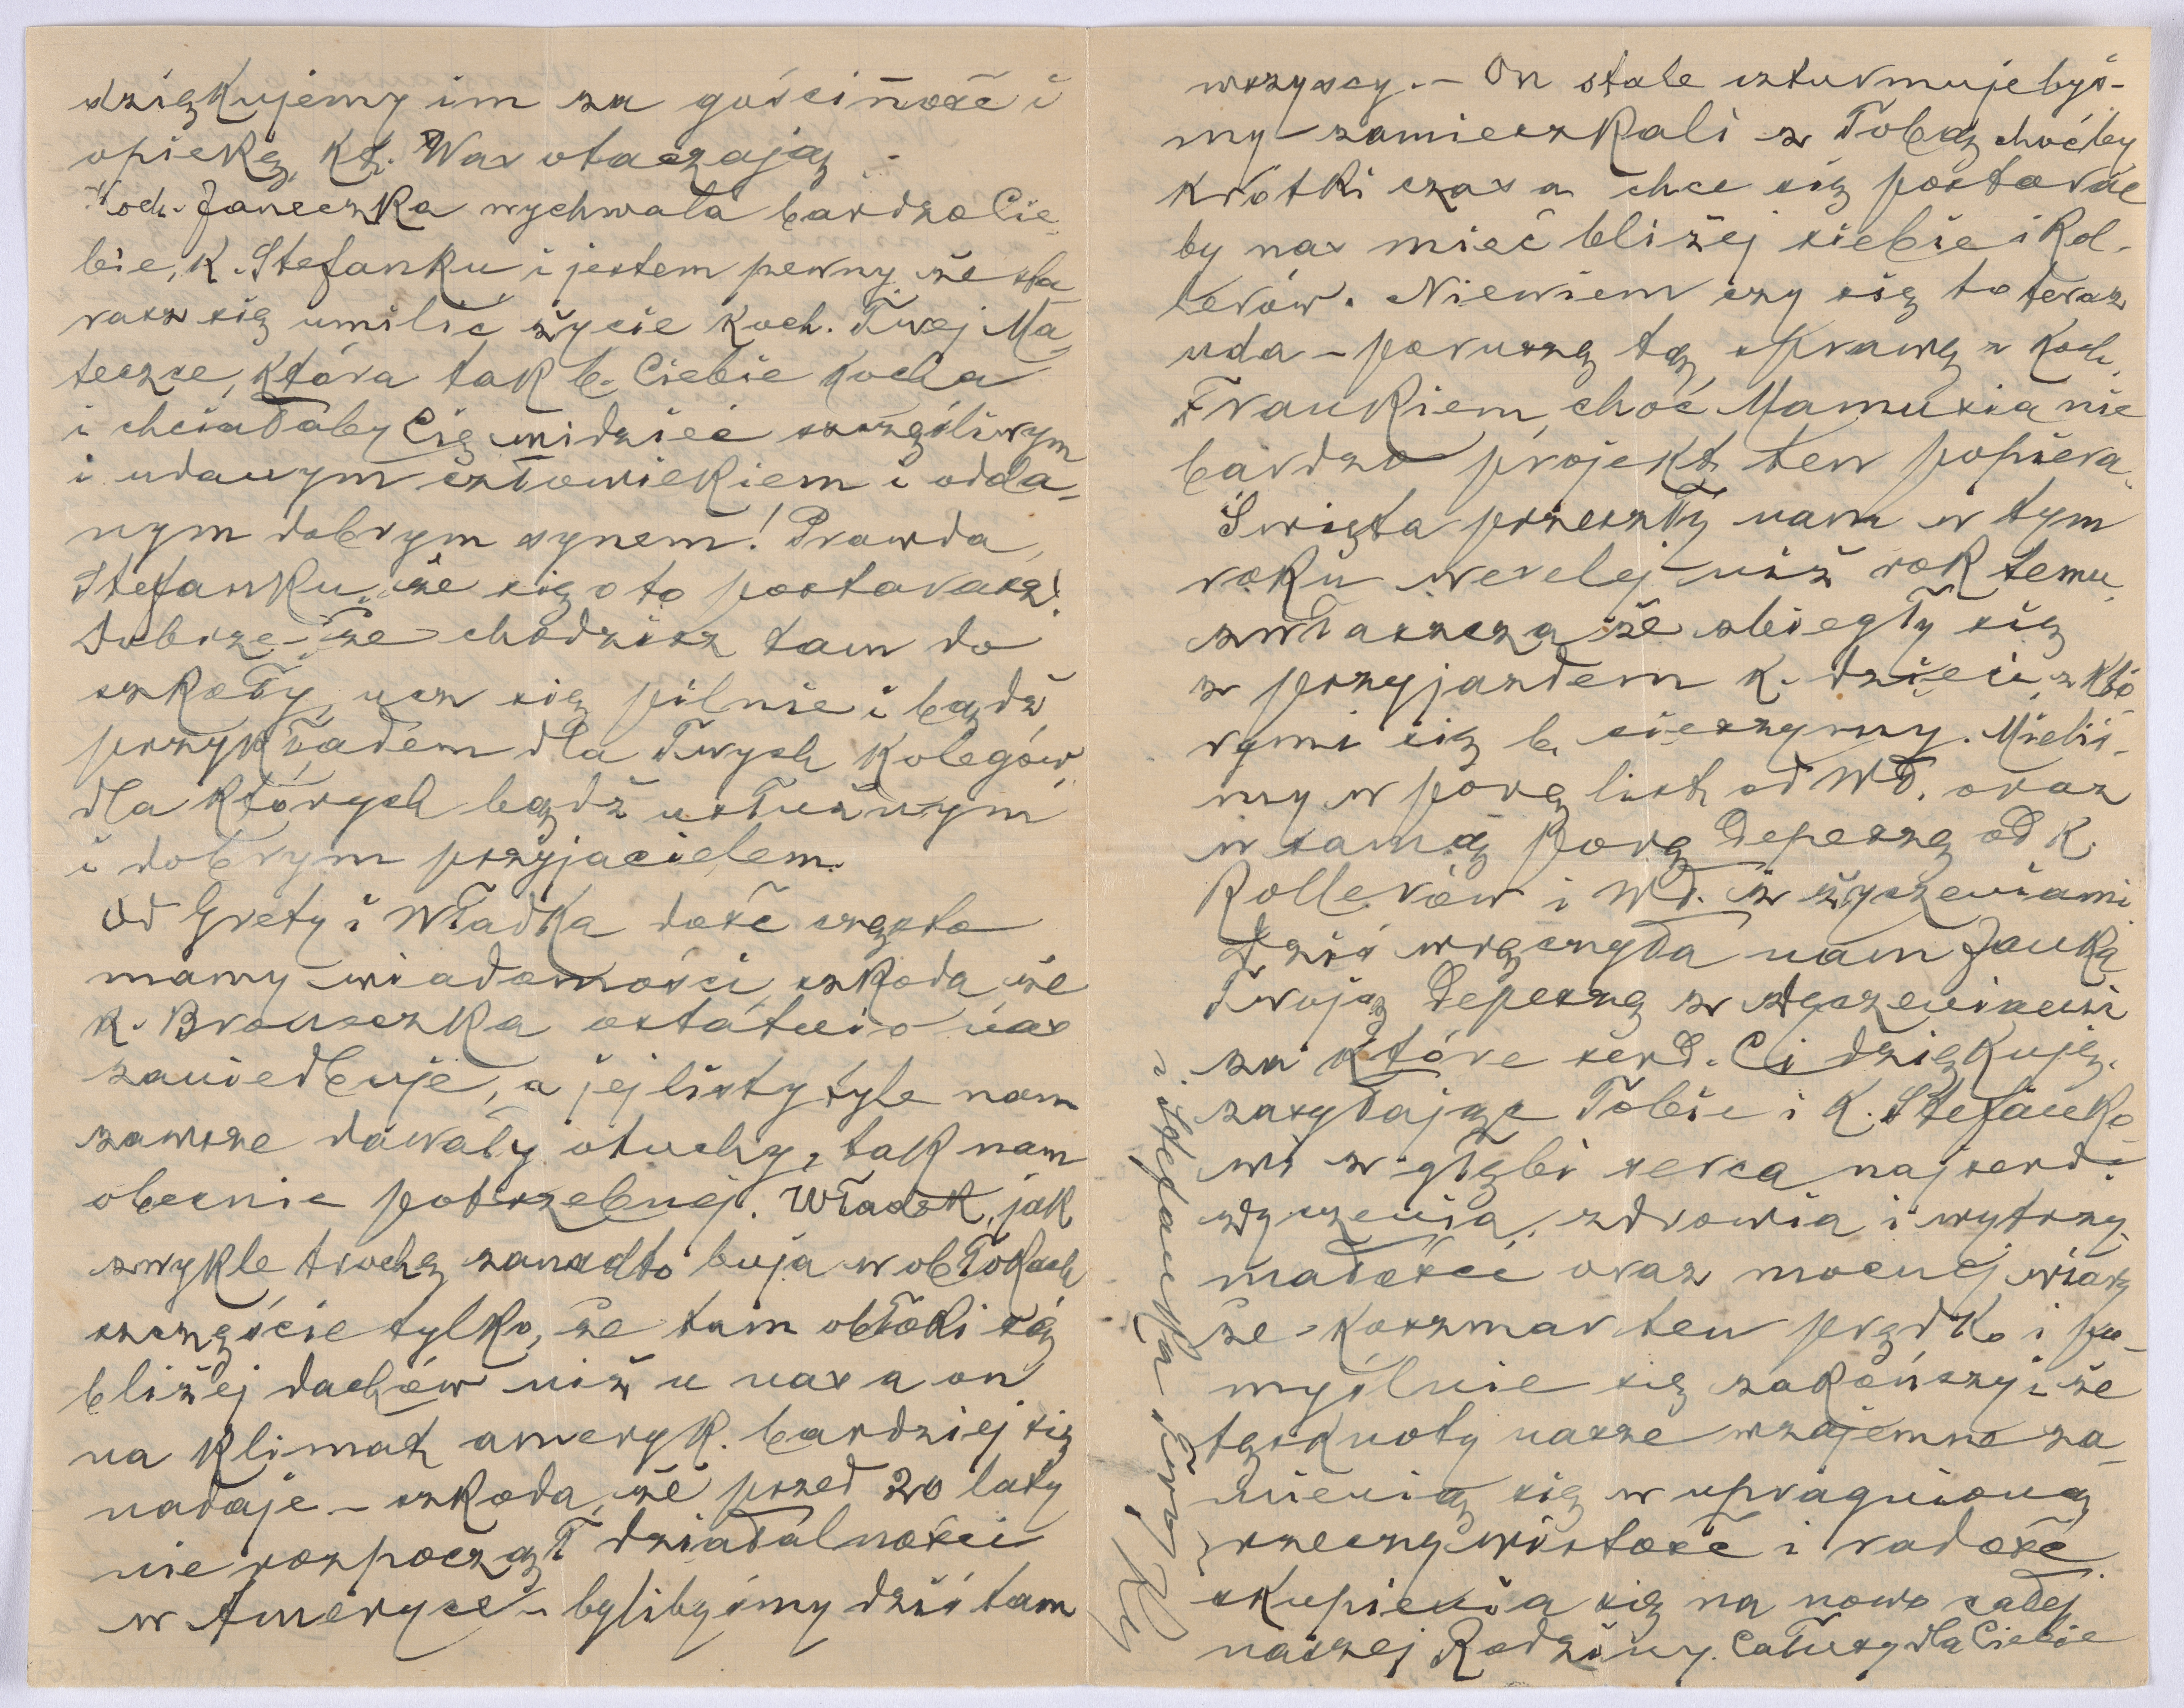 dziękujemy im za gościnność i
opiekę, kt. Was otaczają.
Koch. Janeczka wychwala bardzo Cie-
bie, K. Stefanku i jestem pewny, że sta-
rasz się umilić życie Koch. Twej Ma-
teczce, która tak b. Ciebie kocha
i chciałaby Cię widzieć szczęśliwym
i udanym człowiekiem i odda-
nym dobrym synem! Prawda,
Stefanku, że się o to postarasz!
Dobrze - że chodzisz tam do
szkoły, ucz się pilnie i bądź
przykładem dla Twych Kolegów,
dla których bądź usłużnym
i dobrym przyjacielem.
Od Grety i Władka dość często
mamy wiadomości, szkoda, że
K. Broneczka ostatnio nas
zaniedbuje, a jej listy tyle nam
zawsze dawały otuchy, tak nam
obecnie potrzebnej. Władek, jak
zwykle trochę zanadto buja w obłokach
szczęście tylko, że tam obłoki są
bliżej dachów niż u nas a on
na klimat ameryk. bardziej się
nadaje - szkoda, że przed 20 laty
nie rozpoczął działalności
w Ameryce - bylibyśmy dziś tam
wszyscy. - On stale szturmuje byś-
my zamieszkali z Tobą choćby
krótki czas a chce się postarać
by nas mieć bliżej siebie i Rol-
lerów. Niewiem czy się to teraz
uda - poruszę tę sprawę z Koch.
Frankiem, choć Mamusia nie
bardzo projekt ten popiera.
Święta przeszły nam w tym
roku weselej niż rok temu,
zwłaszcza że zbiegły się
z przyjazdem K. dzieci, z któ-
rymi się b. cieszymy. Mieliś-
my w porę list od Wł. oraz
w samą porę depeszę od K.
Rollerów i Wł. z życzeniami
Dziś wręczyła nam Janka
Twoją depeszę z życzeniami
za które serd. Ci dziękuję,
zasyłając Tobie i K. Stefanko-
wi z głębi serca najserd.
życzenia, zdrowia i wytrzy-
małości oraz mocnej wiary
że koszmar ten prędko i po-
myślnie się zakończy i że
tęsknoty nasze wzajemne za-
mienią się w upragnioną
rzeczywistość i radość
skupienia się na nowo całej
naszej Rodziny. Całusy dla Ciebie
i Stefanka Twój